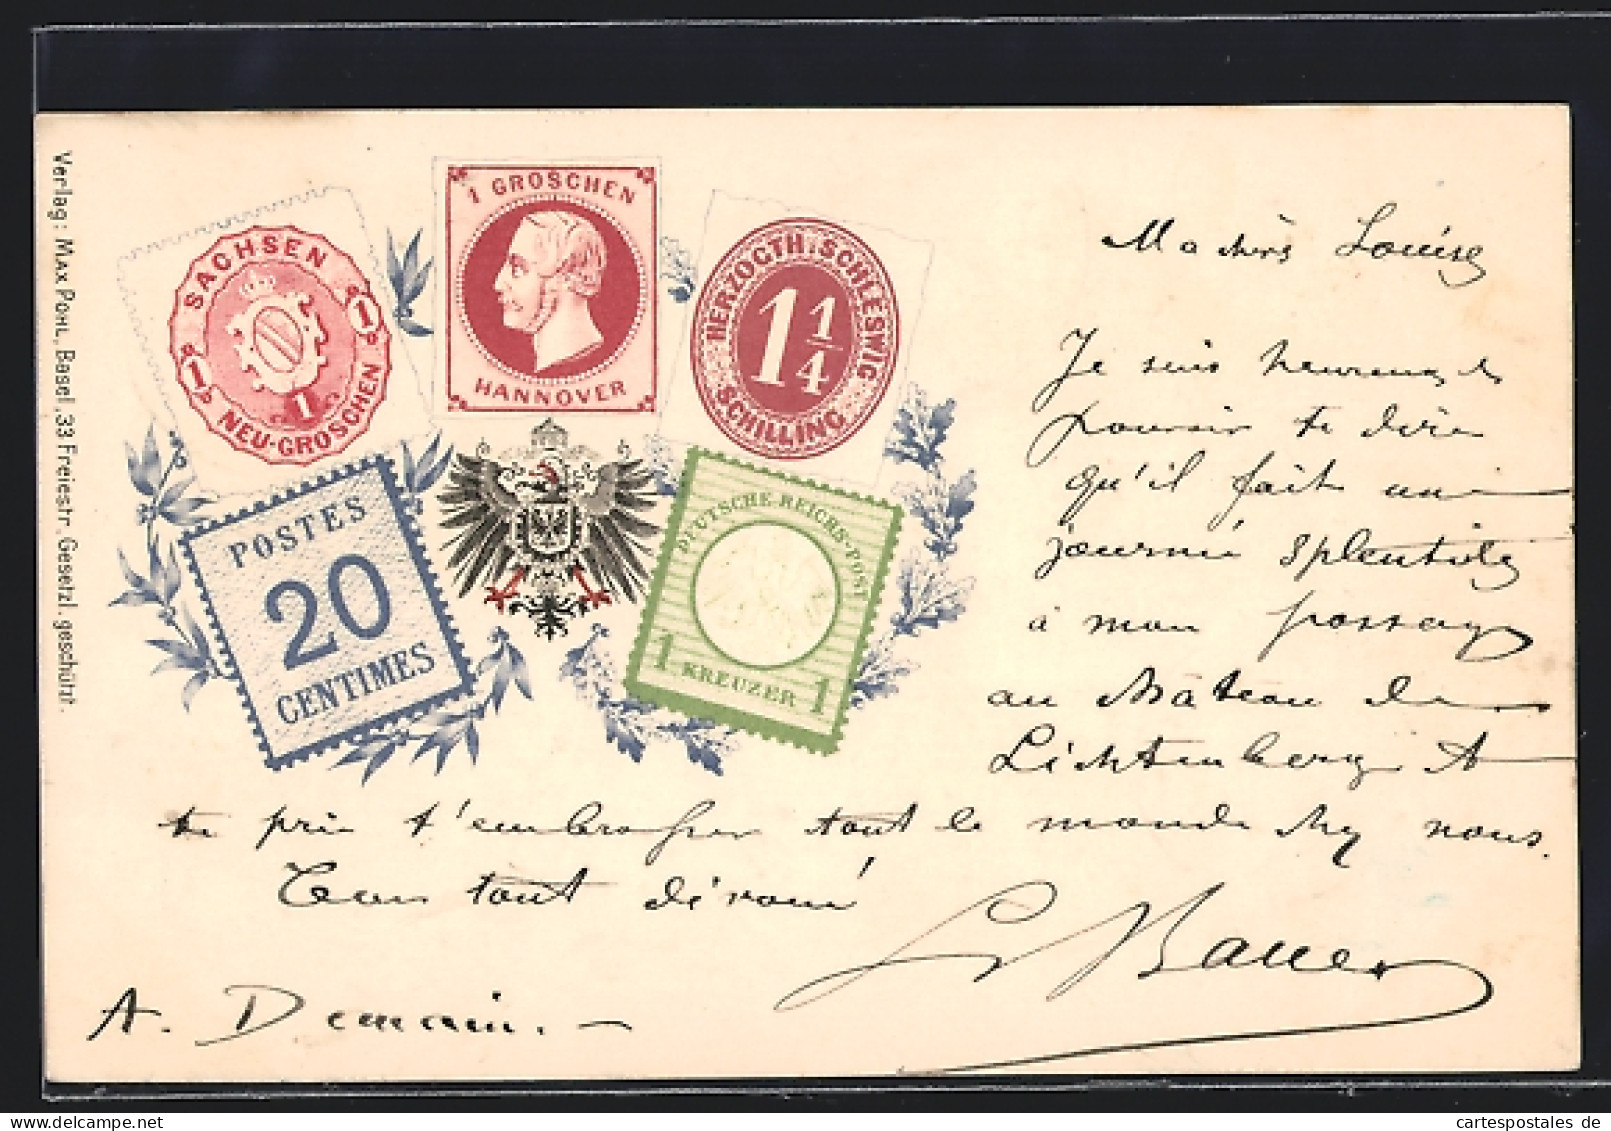 Verlag: Max Pohl, Basel, 33 Freiestr. Gesetzl. geschützt.
SACHSEN
1
1
1
NEU-GROSCHEN
1 GROSCHEN
HANNOVER
HERZOGTH. SCHLESWIG
1 1/4
SCHILLING
POSTES
20
CENTIMES
DEUTSCHE REICHS-POST
1 KREUZER 1
Ma chère Louise
Je suis heureux de
pouvoir te dire
qu'il fait une
journée splentide
à mon passage
au Château de
Lichtenberg
te prie d'embrasser tout le monde chez nous.
Ton tout dévoué
Bauer
A. Demain. –
cartespostales de